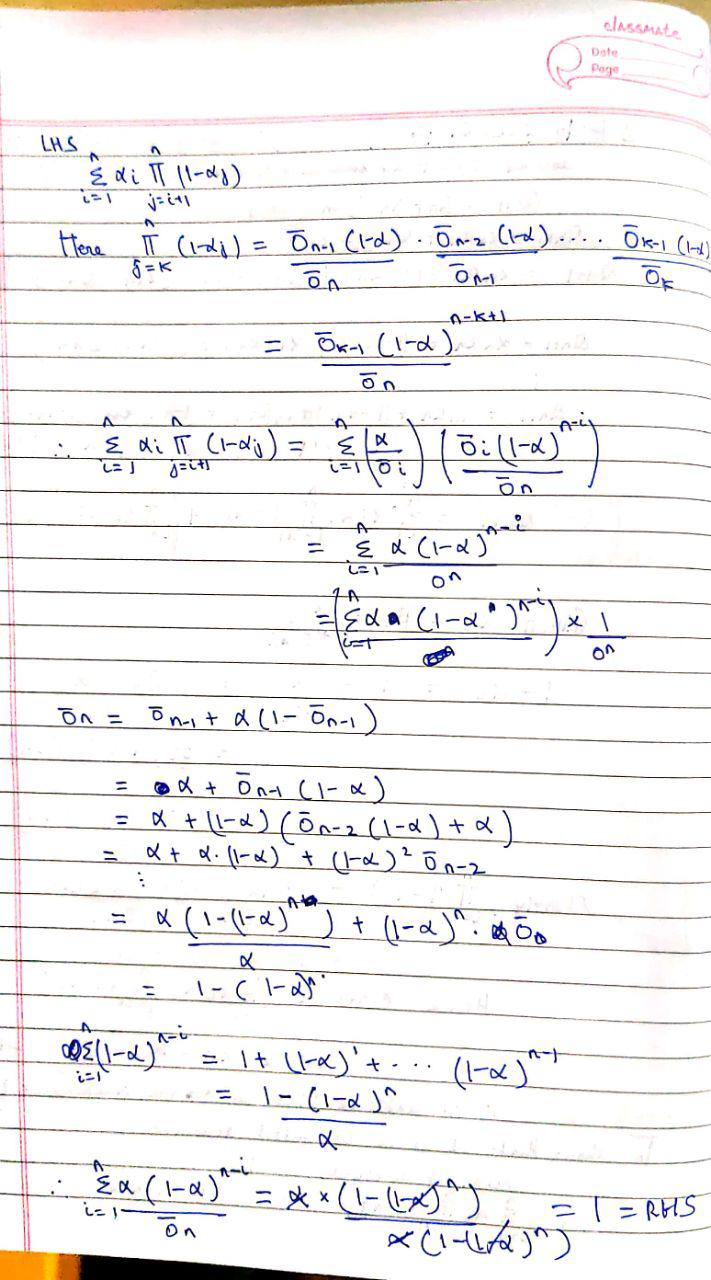 classmate
Date
Page
LHS
n∑i=1 αi n∏j=i+1 (1-αj)
Here n∏j=k (1-αj) = ōn-1 (1-α)/ōn · ōn-2 (1-α)/ōn-1 .... ōk-1 (1-α)/ōk
= ōk-1 (1-α)^n-k+1/ōn
∴ n∑i=1 αi n∏j=i+1 (1-αj) = n∑i=1 (α/ōi) (ōi(1-α)^n-i/ōn)
= n∑i=1 α(1-α)^n-i/on
= (n∑i=1 α (1-α)^n-i) × 1/on
ōn = ōn-1 + α(1-ōn-1)
= α + ōn-1 (1-α)
= α + (1-α) (ōn-2 (1-α) + α)
= α + α.(1-α) + (1-α)² ōn-2
⋮
= α (1-(1-α)^n)/α + (1-α)^n . ō0
= 1-(1-α)^n.
n∑i=1 (1-α)^n-i = 1+ (1-α)^1 + ... (1-α)^n-1
= 1-(1-α)^n/α
∴ n∑i=1 α(1-α)^n-i/ōn = α × (1-(1-α)^n)/α(1-(1-α)^n) = 1 = RHS